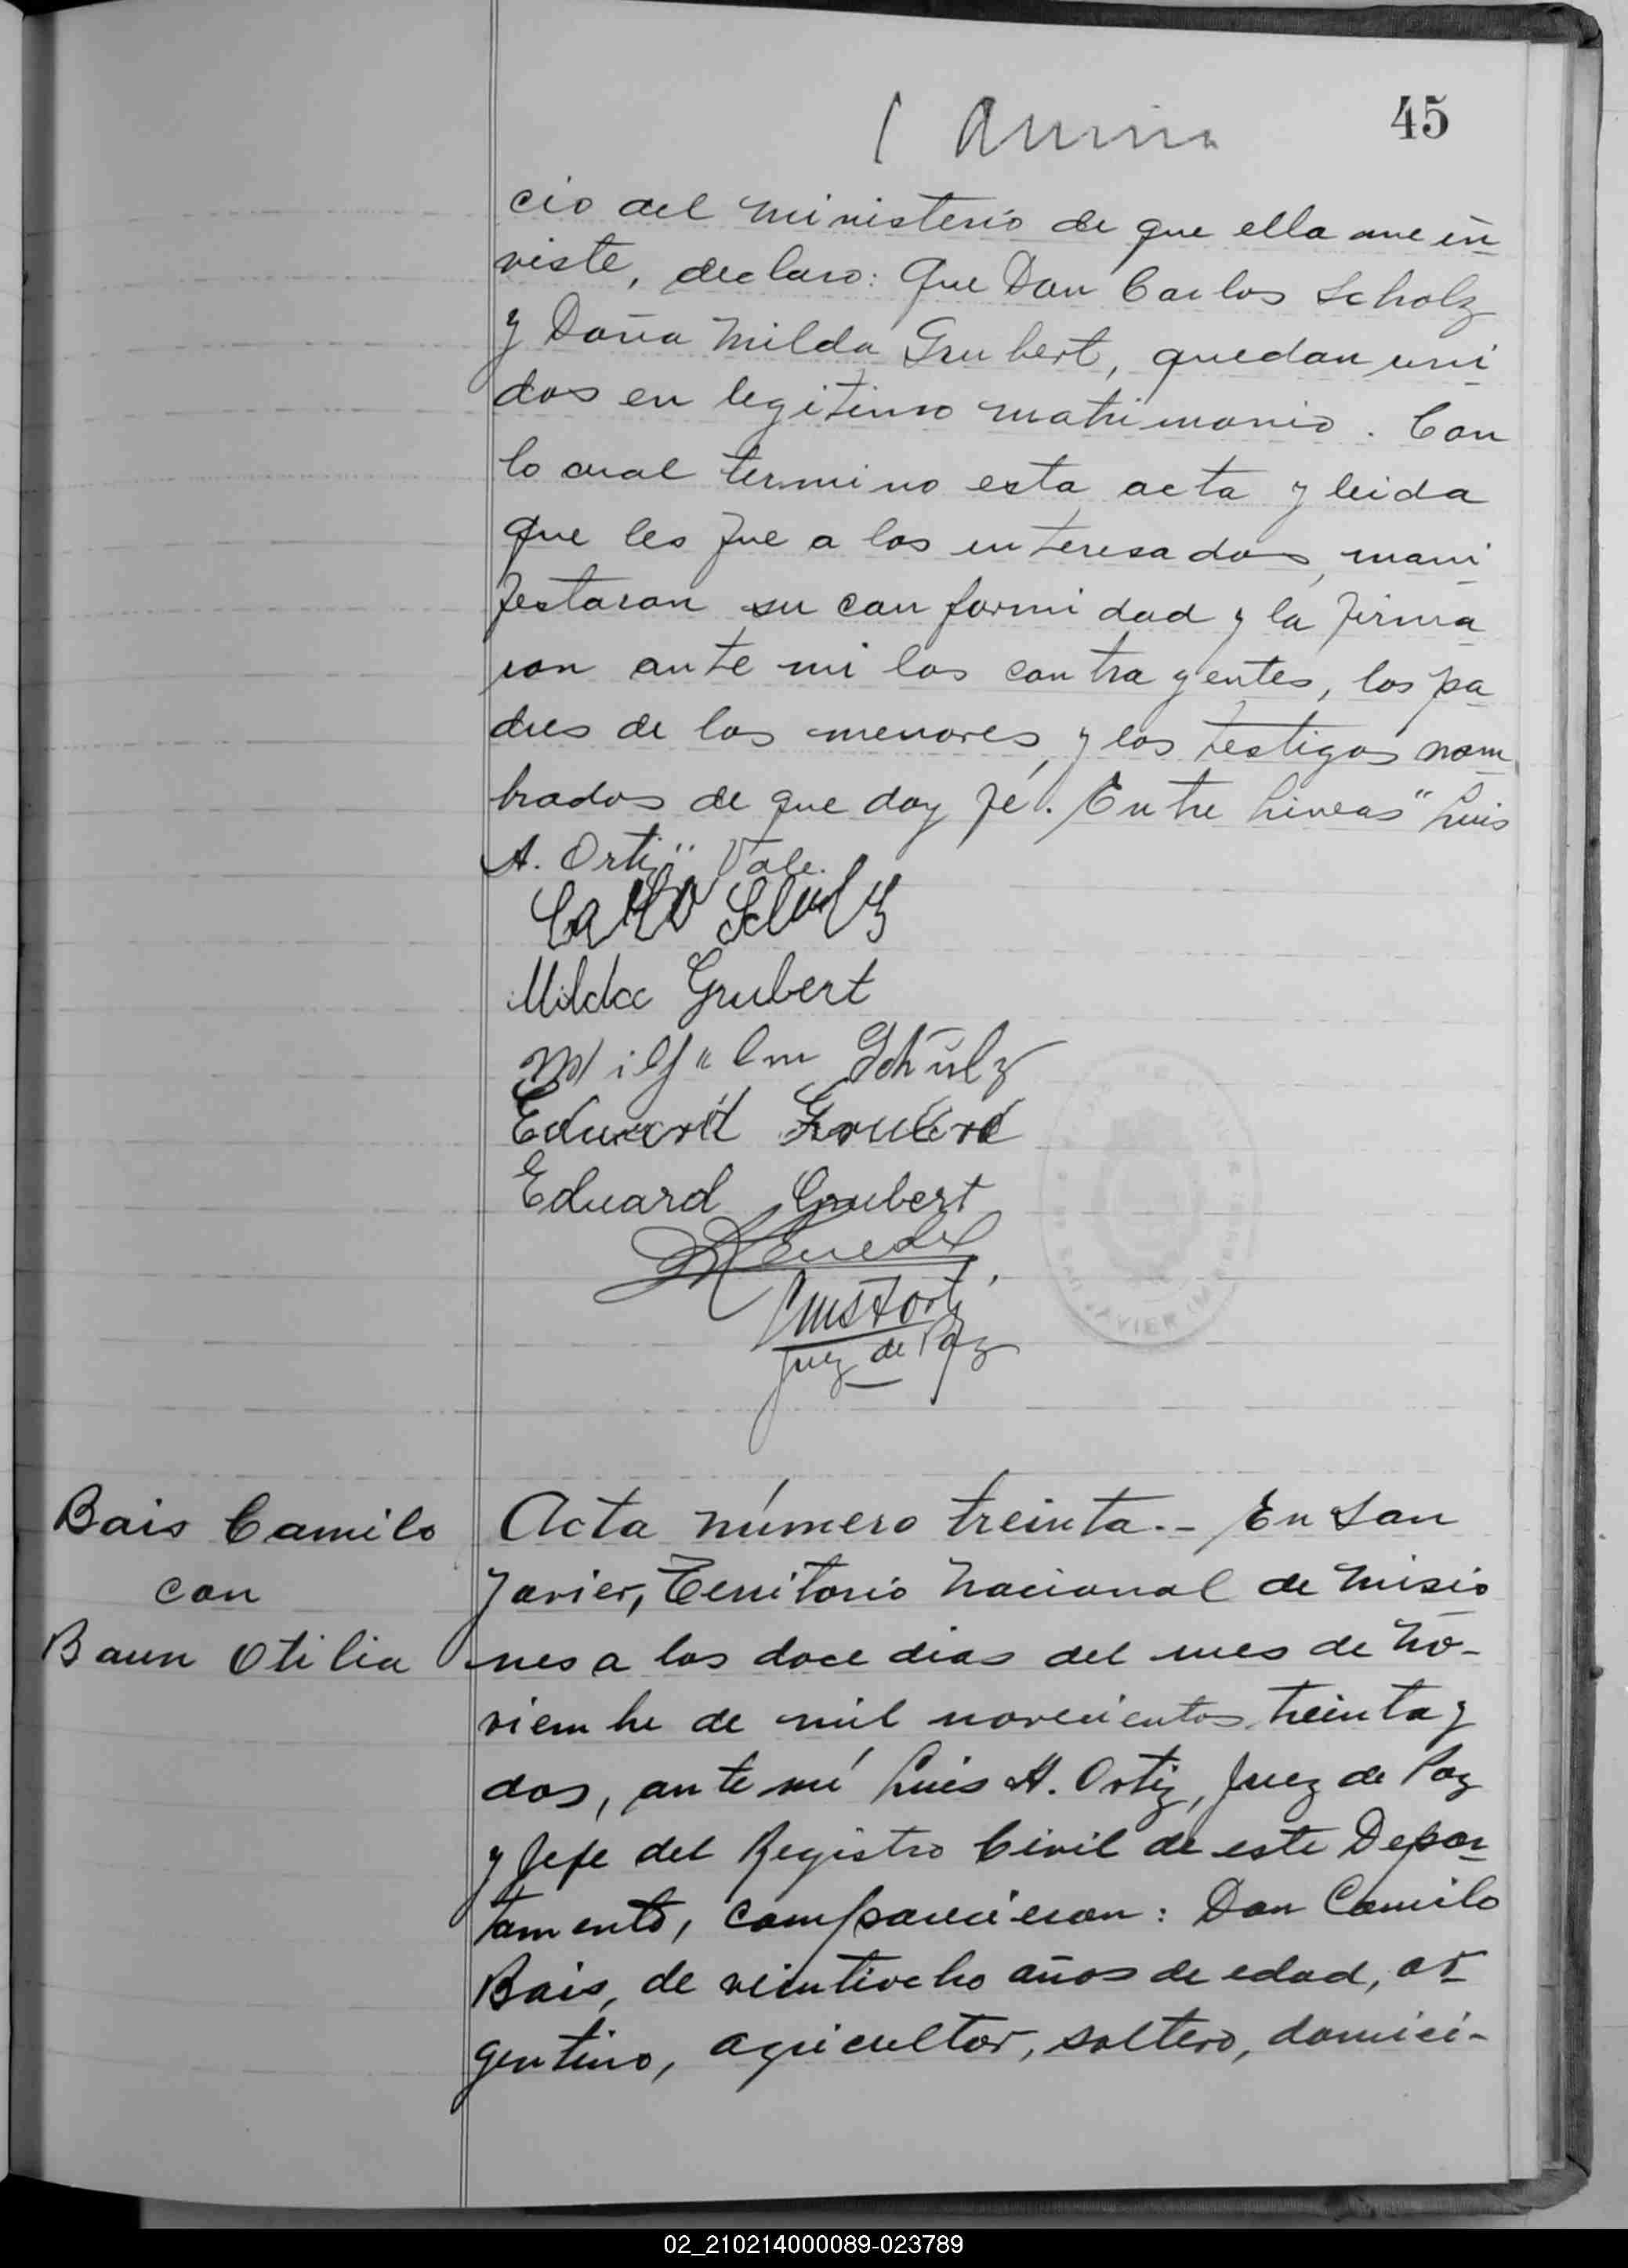 45
cio del ministerio de que ella me in
viste, declaro: Que Don Carlos Scholz
y Doña Milda Grubert, quedan uni
dos en legitimo matrimonio. Con
lo cual termino esta acta y leida
que les fue a los interesados, mani
festaron su conformidad y la firma
ron ante mi los contragentes, los pa
dres de los menores, y los testigos nom
brados de que doy fé. Entre lineas "Luis
A. Orti" Vale.
Milda Grubert
Wilhelm Schülz
Eduard
Eduard Grubert
Juez de Paz
Bais Camilo
con
Baun Otilia
Acta número treinta.- En San
Javier, Territorio Nacional de Misio
nes a los doce dias del mes de No-
viembre de mil novecientos treinta y
dos, ante mí Luis A. Ortiz, Juez de Paz
y Jefe del Registro Civil de este Depar
tamento, comparecieron: Don Camilo
Bais, de veintiocho años de edad, ar
gentino, agricultor, soltero, domici-
02_210214000089-023789